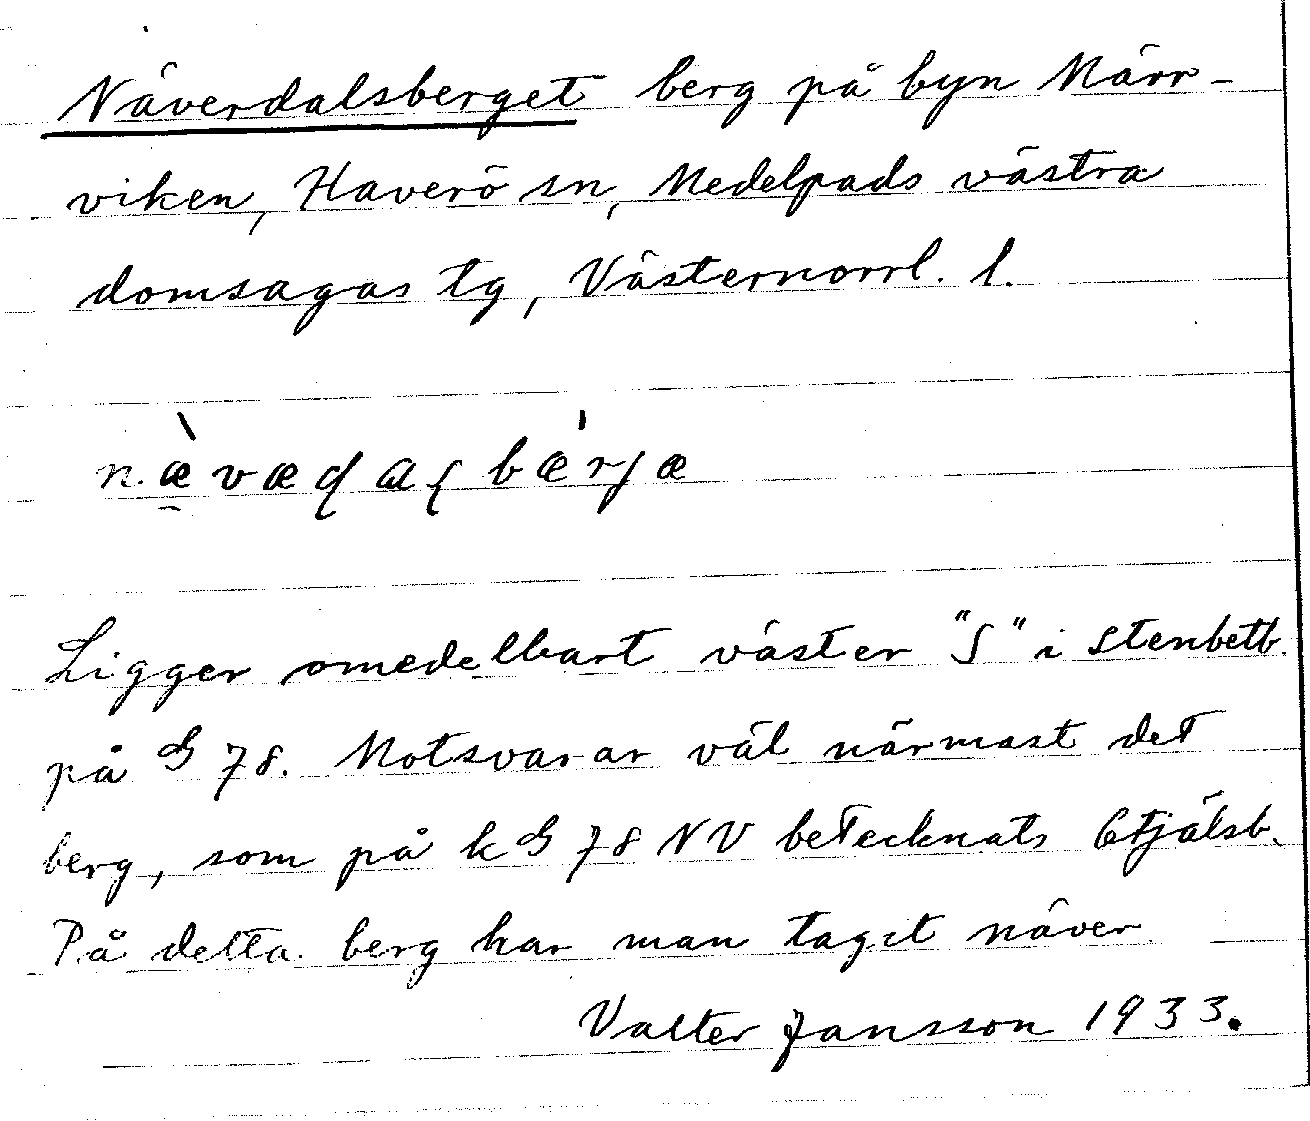 Näverdalsberget berg på byn Märr-
viken, Haverö sn, Medelpads västra
domsagas tg, Västernorrl. l.
Ligger omedelbart väster "S" i Stenbetb.
på G 78. Motsvarar väl närmast det
berg, som på kG 78 NV betecknats
På detta berg har man tagit näver
Valter Jansson 1933.